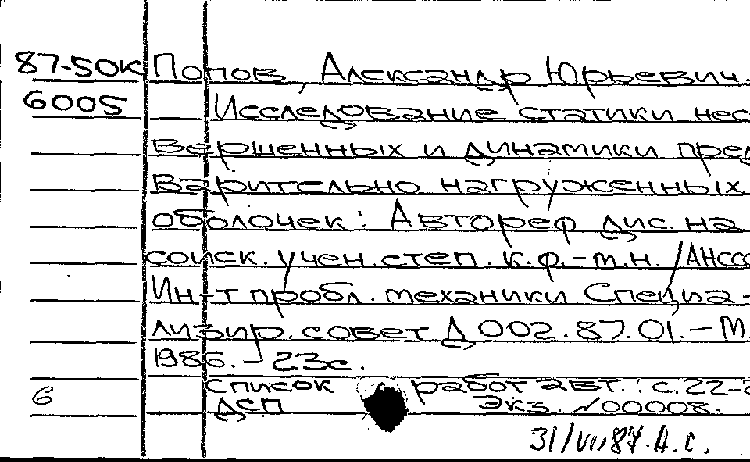 87-50К Попов, Александр Юрьевич.
6005 Исследование статики нес
вершенных и динамики пред
варительно нагруженных
оболочек: Автореф дис. на
соиск. учен. степ. к.ф.-м.н. /АН ссс
Ин-т пробл. механики Специа-
лизир. совет Д 002.87.01. - М
1986. - 23с.
6 Список работ авт.: с.22-2
ДСП Экз. №00008.
31/VII 87. А.С.